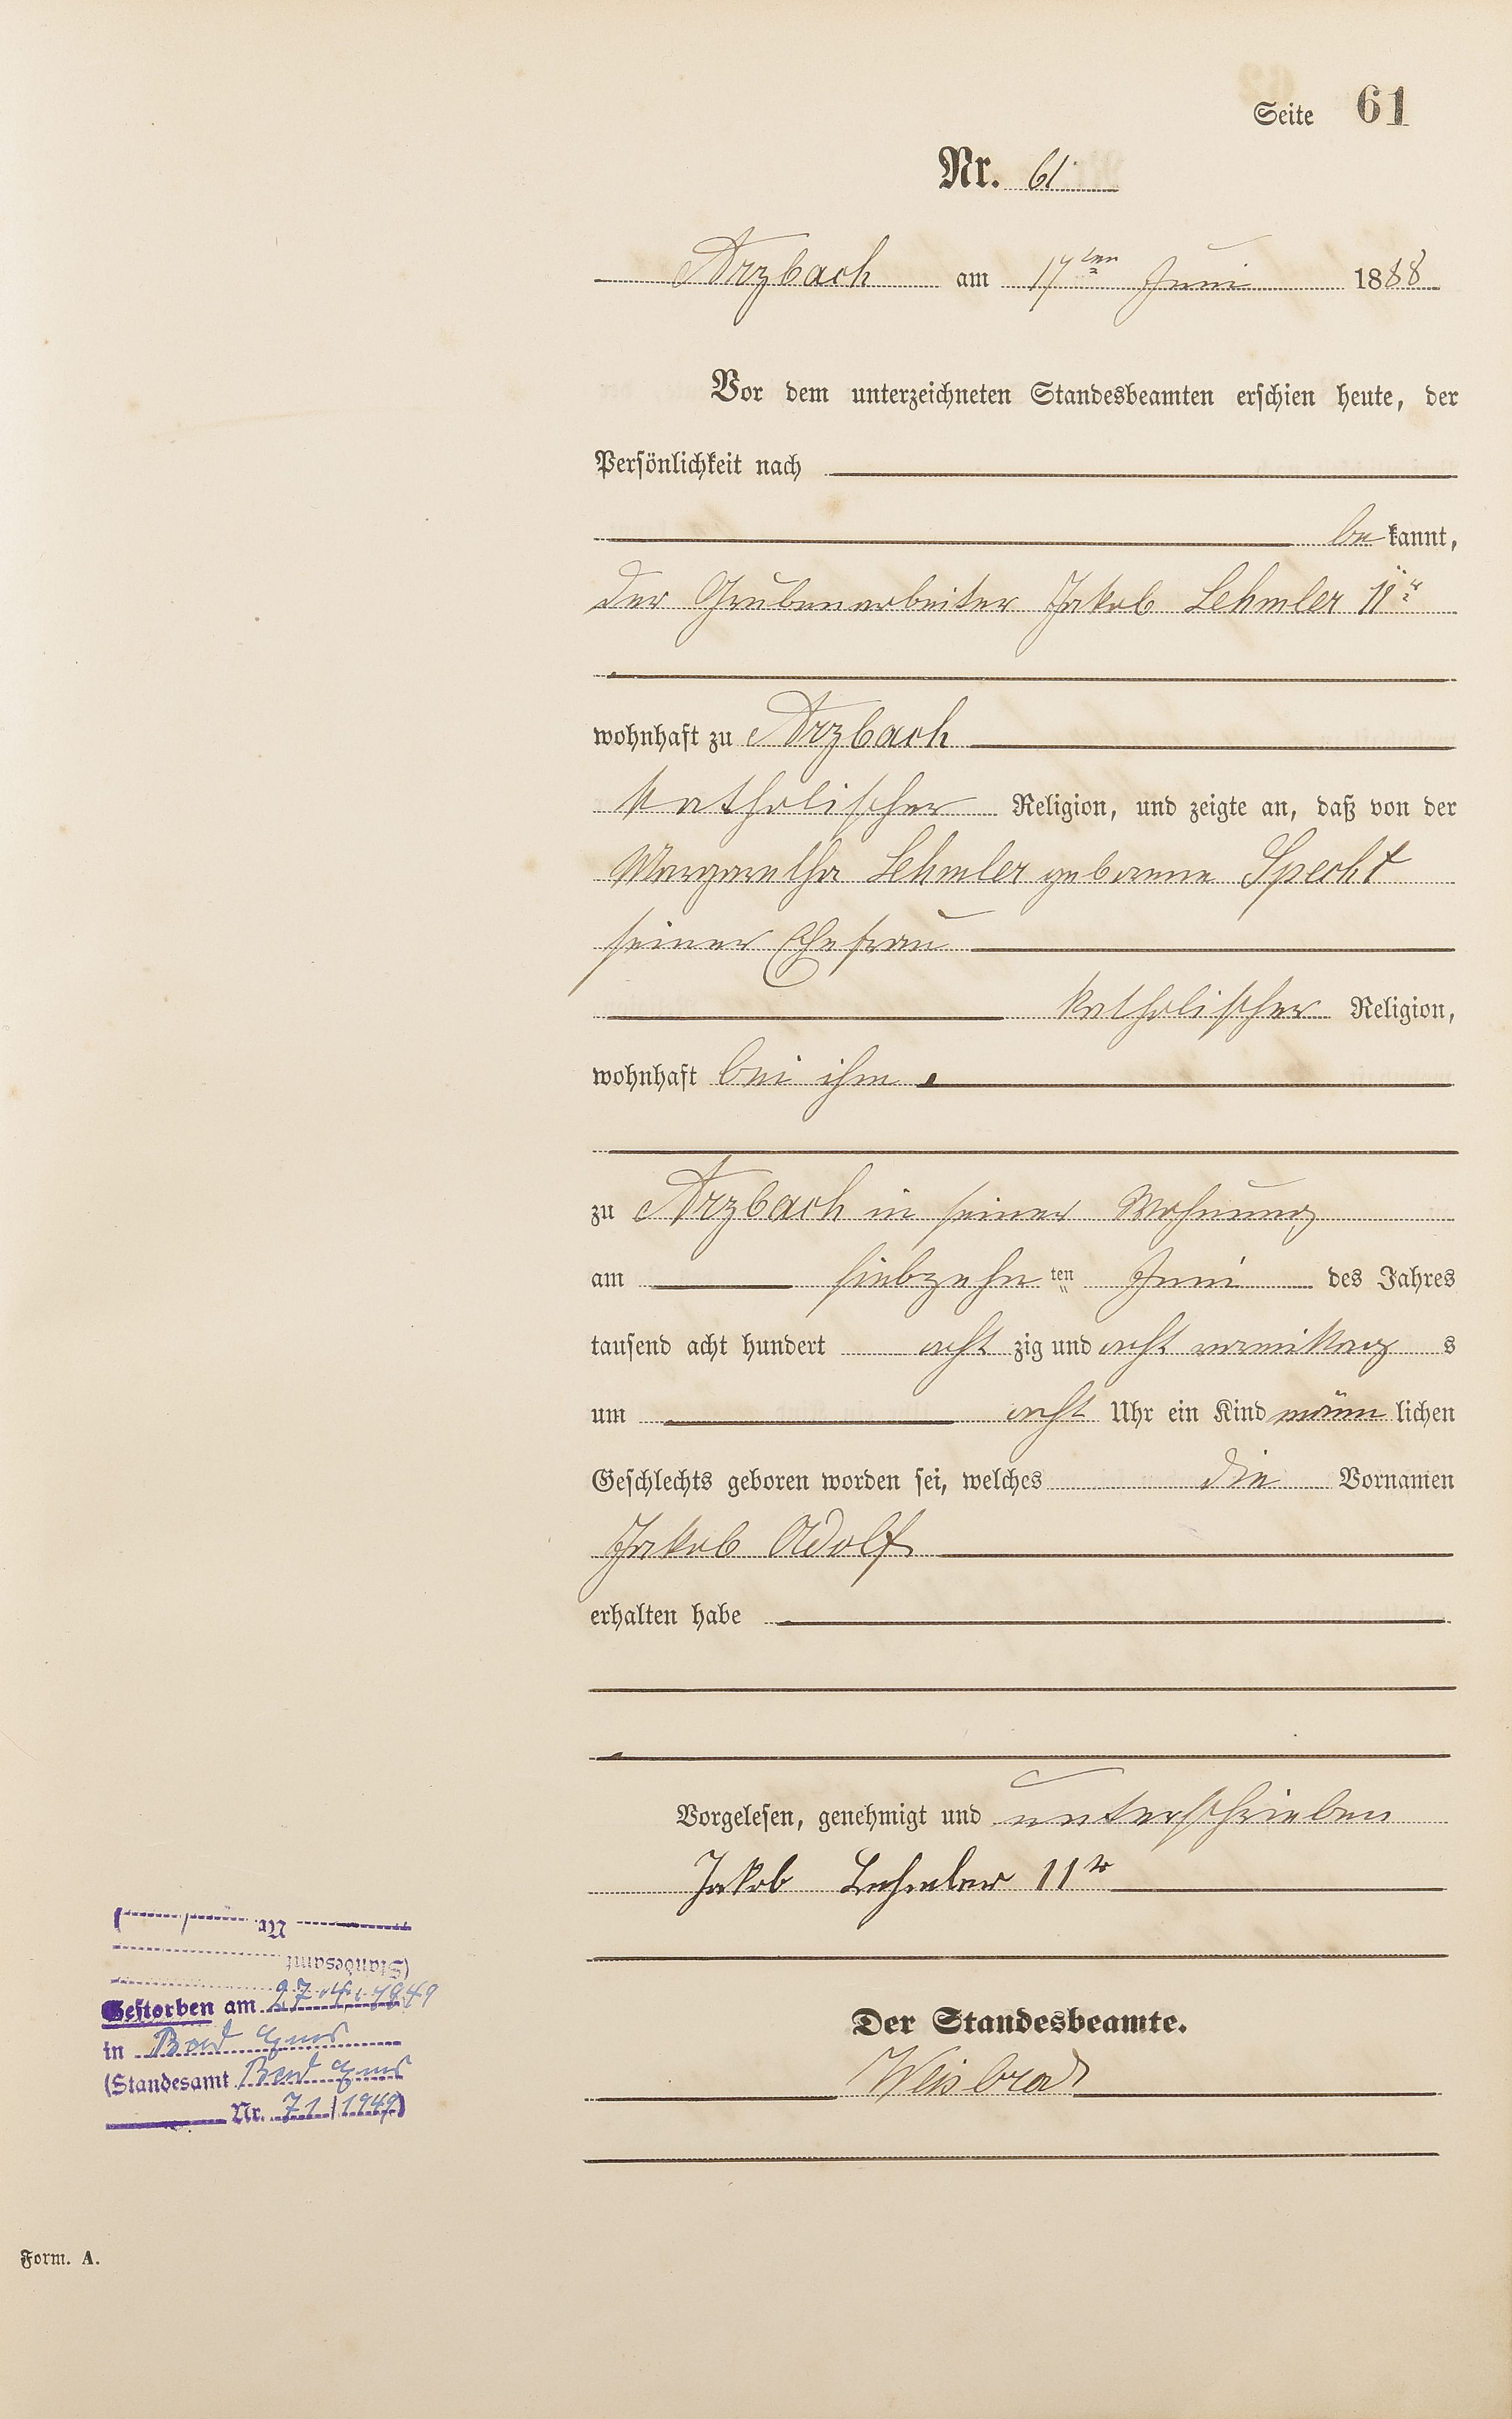 Seite 61
Nr. 61
Arzbach am 17ten Juni 1888
Vor dem unterzeichneten Standesbeamten erschien heute, der
Persönlichkeit nach
bekannt,
der Grubenarbeiter Jakob Lehmler 11r
wohnhaft zu Arzbach
katholischer Religion, und zeigte an, daß von der
Margaretha Lehmler geborene Specht
seiner Ehefrau
katholischer Religion,
wohnhaft bei ihm
zu Arzbach in seiner Wohnung
am siebzehnten Juni des Jahres
tausend acht hundert achtzig und acht vormittags
um acht Uhr ein Kind männlichen
Geschlechts geboren worden sei, welches die Vornamen
Jakob Adolf
erhalten habe
Vorgelesen, genehmigt und unterschrieben
Jakob Lehmler 11r
Der Standesbeamte.
Weisbrod
Nr.
(Standesamt
Gestorben am 27.4.1949
in Bad Ems
(Standesamt Bad Ems
Nr. 71/1949)
Form. A.